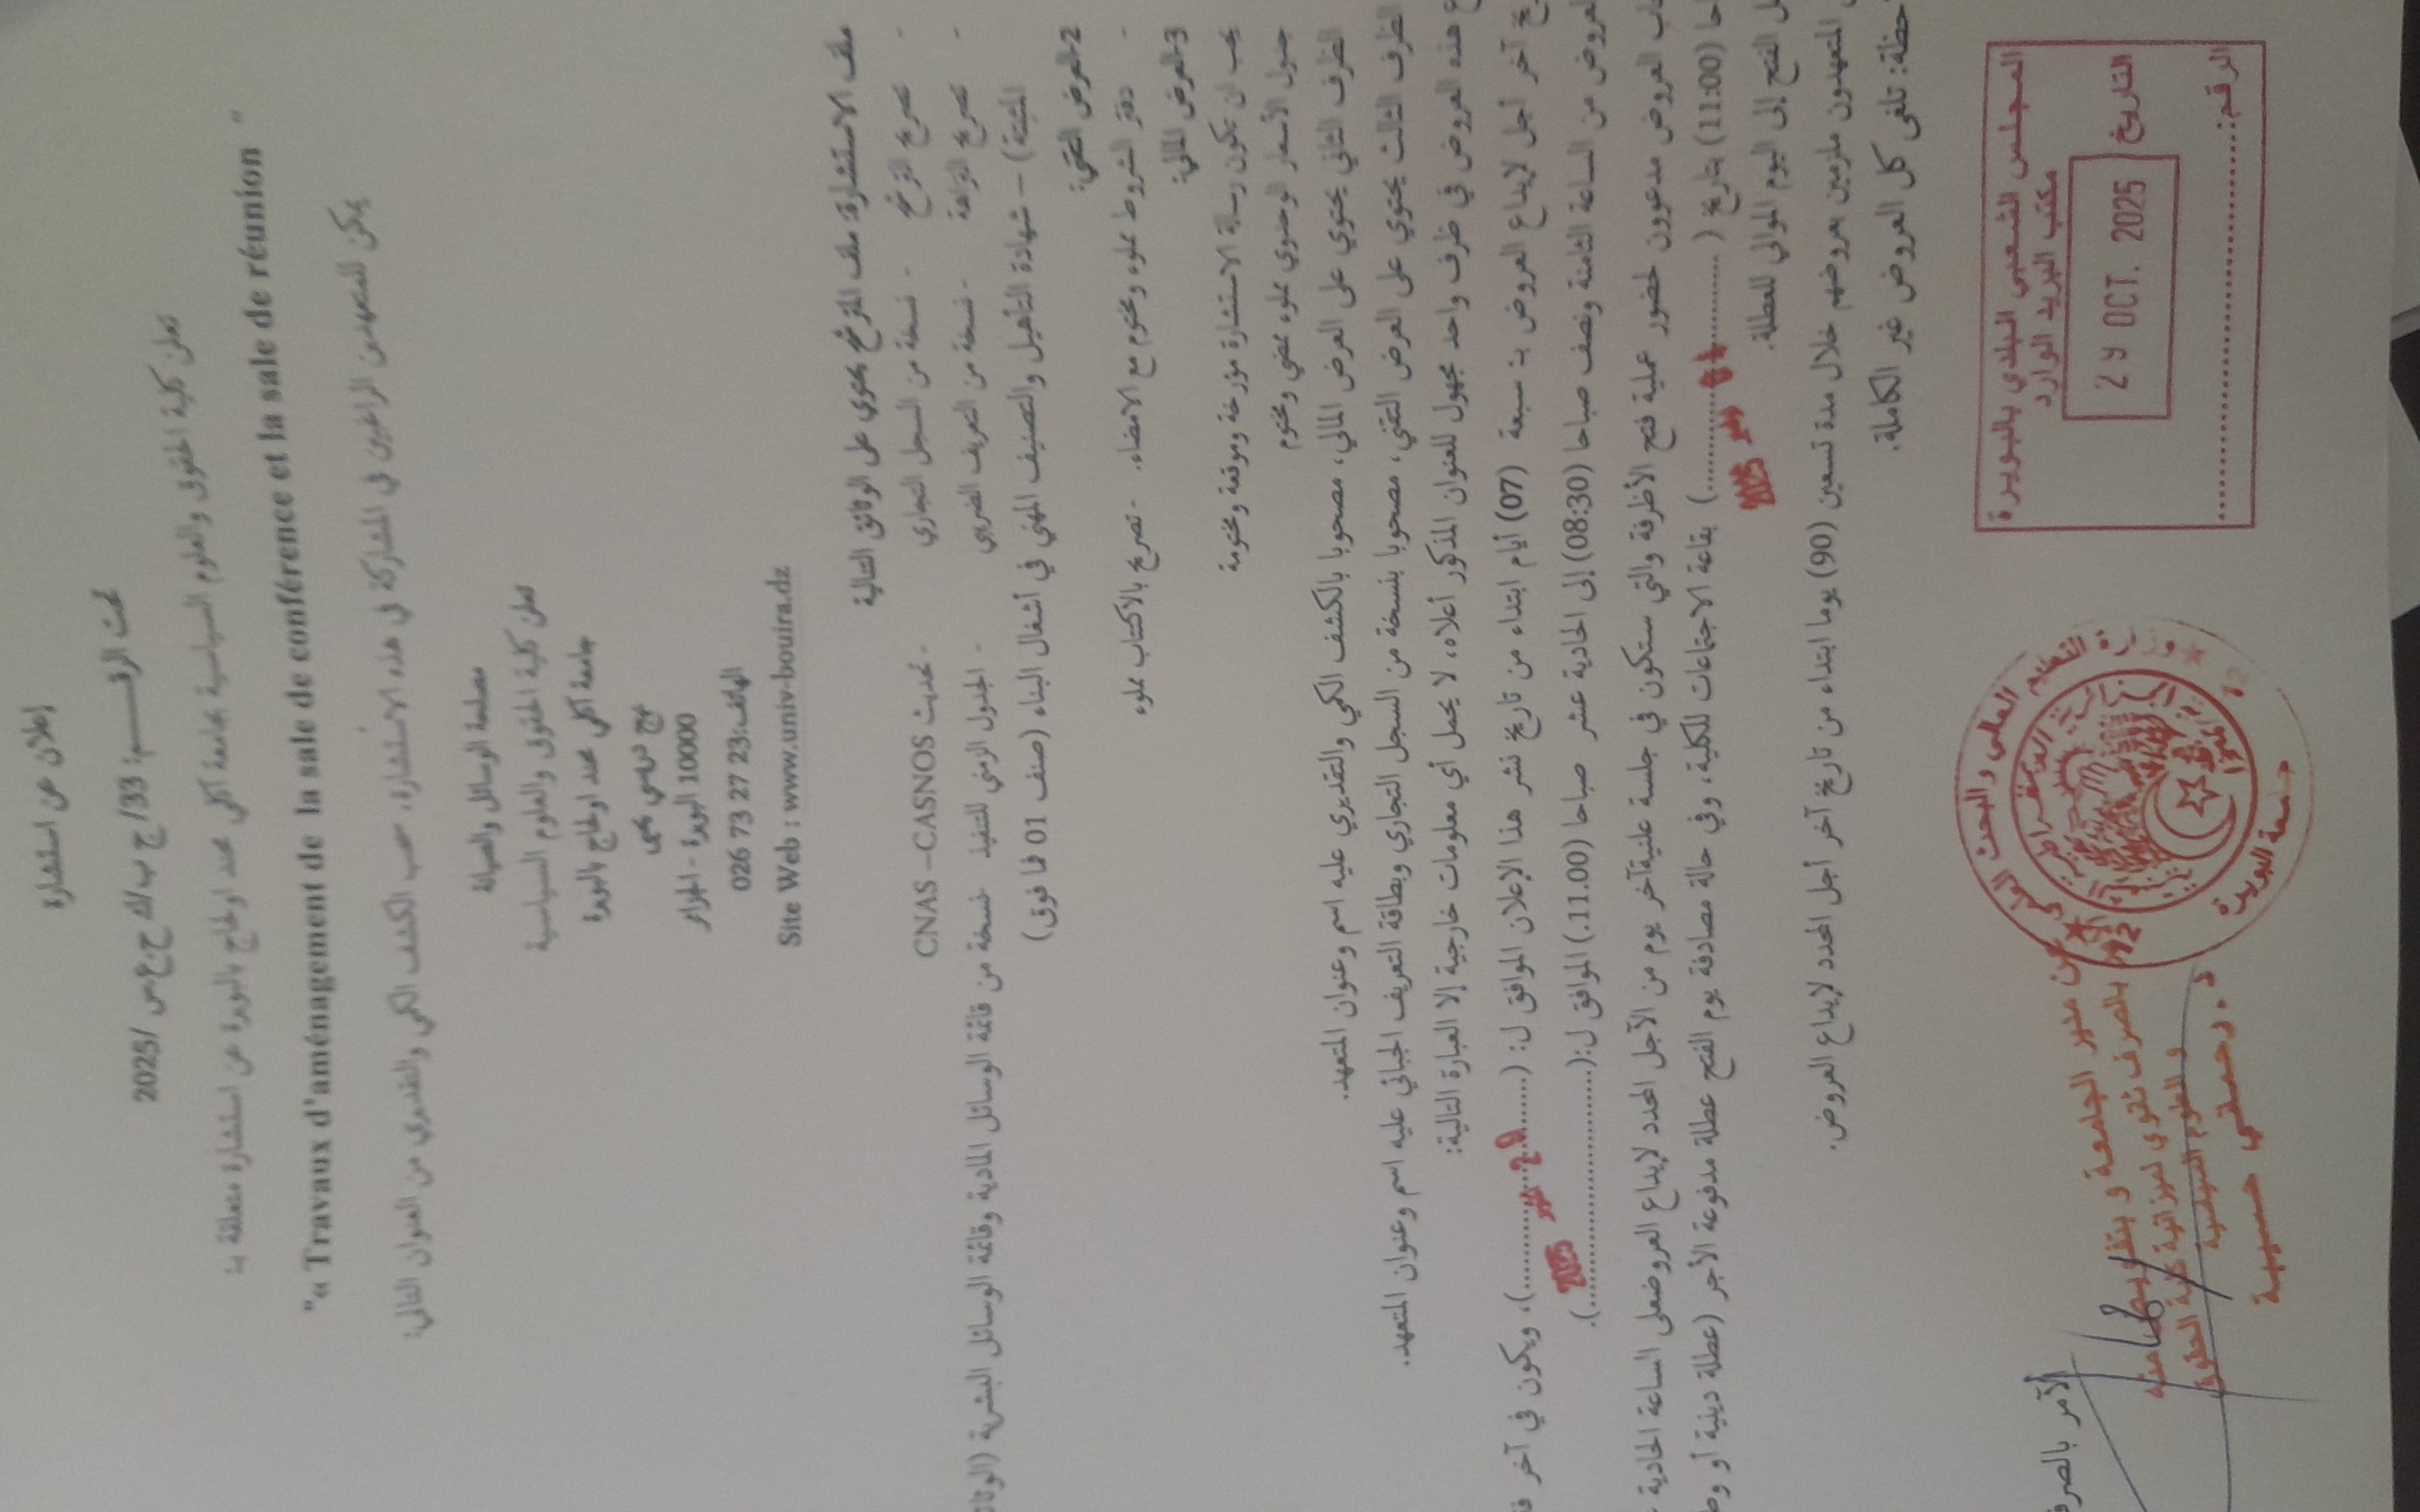 إعلان عن استشارة
تحت الرقـــــم: 33/ج ب/ك ح.ع.س /2025
تعلن كلية الحقوق والعلوم السياسية بجامعة أكلي محند اولحاج بالبويرة عن استشارة متعلقة بـ:
"« Travaux d'aménagement de la sale de conférence et la sale de réunion "
يمكن للمتعهدين الراغبين في المشاركة في هذه الاستشارة، حسب الكشف الكمي والتقديري من العنوان التالي:
مصلحة الوسائل والصيانة
تعلن كلية الحقوق والعلوم السياسية
جامعة أكلي محند اولحاج بالبويرة
نهج دريسي يحيى
10000 البويرة - الجزائر
الهاتف:23 27 73 026
Site Web : www.univ-bouira.dz
ملف الاستشارة: ملف الترشح يحتوي على الوثائق التالية
- تصريح الترشح - نسخة من السجل التجاري - تحديث CNAS –CASNOS
- تصريح النزاهة - نسخة من التعريف الضريبي - الجدول الزمني للتنفيذ نسخة من قائمة الوسائل المادية وقائمة الوسائل البشرية (الوثائق
المثبتة) – شهادة التأهيل والتصنيف المهني في أشغال البناء (صنف 01 فما فوق)
2-العرض التقني:
- دفتر الشروط مملوء ومختوم مع الامضاء. - تصريح بالاكتتاب مملوء
3-العرض المالي:
يجب ان تكون رسالة الاستشارة مؤرخة وموقعة ومختومة
جدول الأسعار الوحدوي مملوء ممضي ومختوم
الظرف الثاني يحتوي على العرض المالي، مصحوبا بالكشف الكمي والتقديري عليه اسم وعنوان المتعهد.
الظرف الثالث يحتوي على العرض التقني، مصحوبا بنسخة من السجل التجاري وبطاقة التعريف الجبائي عليه اسم وعنوان المتعهد.
هذه العروض في ظرف واحد مجهول للعنوان المذكور أعلاه، لا يحمل أي معلومات خارجية إلا العبارة التالية:
آخر أجل لإيداع العروض بـ سبعة (07) أيام ابتداء من تاريخ نشر هذا الإعلان الموافق ل: (............)، ويكون في آخر
العروض من الساعة الثامنة ونصف صباحا (08:30) إلى الحادية عشر صباحا (11.00.) الموافق ل:(............).
2025
العروض مدعوون لحضور عملية فتح الأظرفة والتي ستكون في جلسة علنية آخر يوم من الآجل المحدد لإيداع العروضعلى الساعة الحادية
(11:00) بتاريخ (............) بقاعة الاجتماعات للكلية، وفي حالة مصادفة يوم الفتح عطلة مدفوعة الأجر (عطلة دينية أو
2025
الفتح إلى اليوم الموالي للعطلة.
المتعهدون ملزمين بعروضهم خلال مدة تسعين (90) يوما ابتداء من تاريخ آخر أجل المحدد لإيداع العروض.
تلغى كل العروض غير الكاملة.
المجلس الشعبي البلدي بالبويرة
مكتب البريد الوارد
التاريخ 29 OCT. 2025
الرقم:............
جامعة البويرة
الآمر بالصرف
عن مدير الجامعة و بتفويض منه
بالصرف ثانوي لميزانية كلية الحقوق
و العلوم السياسية
د. رحماني حسيبة